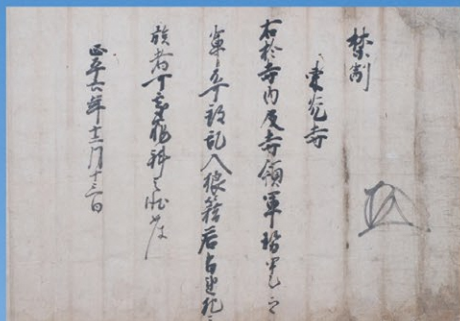 禁制
東光寺
右於寺内及寺領軍勢甲乙之
輩不可致乱入狼籍若有違犯之
族者可處罪科之状如件
正平六年十二月十三日